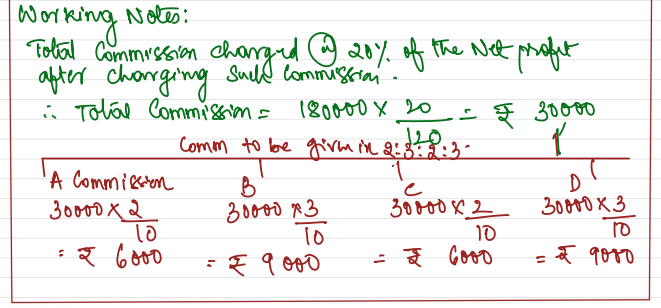 Working Notes:
Total Commission charged @ 20% of the Net profit
after charging such Commission.
∴ Total Commission = 180000 × 20/120 = ₹ 30000
Comm to be given in 2:3:2:3.
A Commission B C D
30000 × 2/10 30000 × 3/10 30000 × 2/10 30000 × 3/10
= ₹ 6000 = ₹ 9000 = ₹ 6000 = ₹ 9000